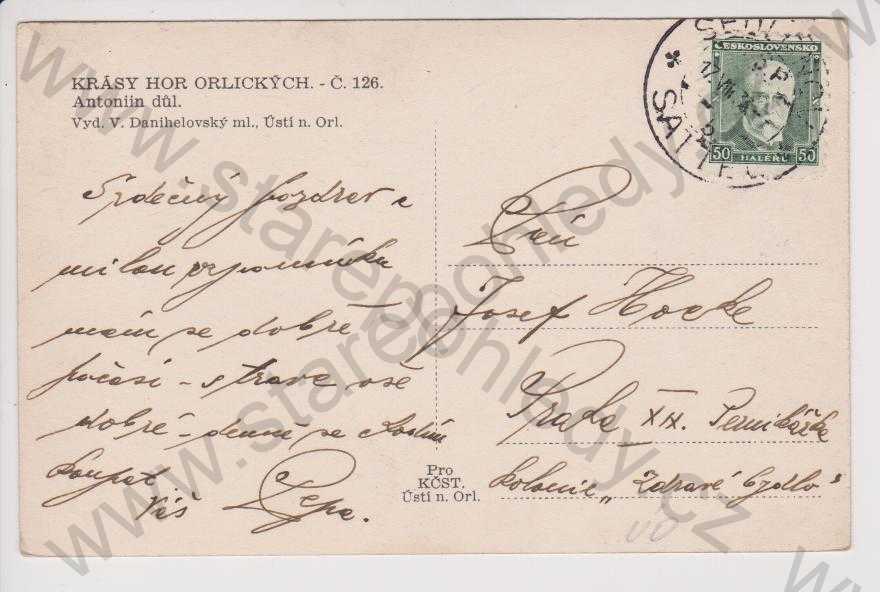 KRÁSY HOR ORLICKÝCH. - Č. 126.
Antoniin důl.
Vyd. V. Danihelovský ml., Ústí n. Orl.
ČESKOSLOVENSKO
50 HALÉŘŮ 50
Srdečný pozdrav a
milou vzpomínku
mám se dobře
počasí - strava vše
dobré - denně se chodím
koupat
Váš Pepa.
Pan
Josef Hocke
Praha XIX. Pernikářka
kolonie „Zdravé bydlo"
Pro
KČST.
Ústí n. Orl.
www.starepohledy.cz
www.starepohledy.cz